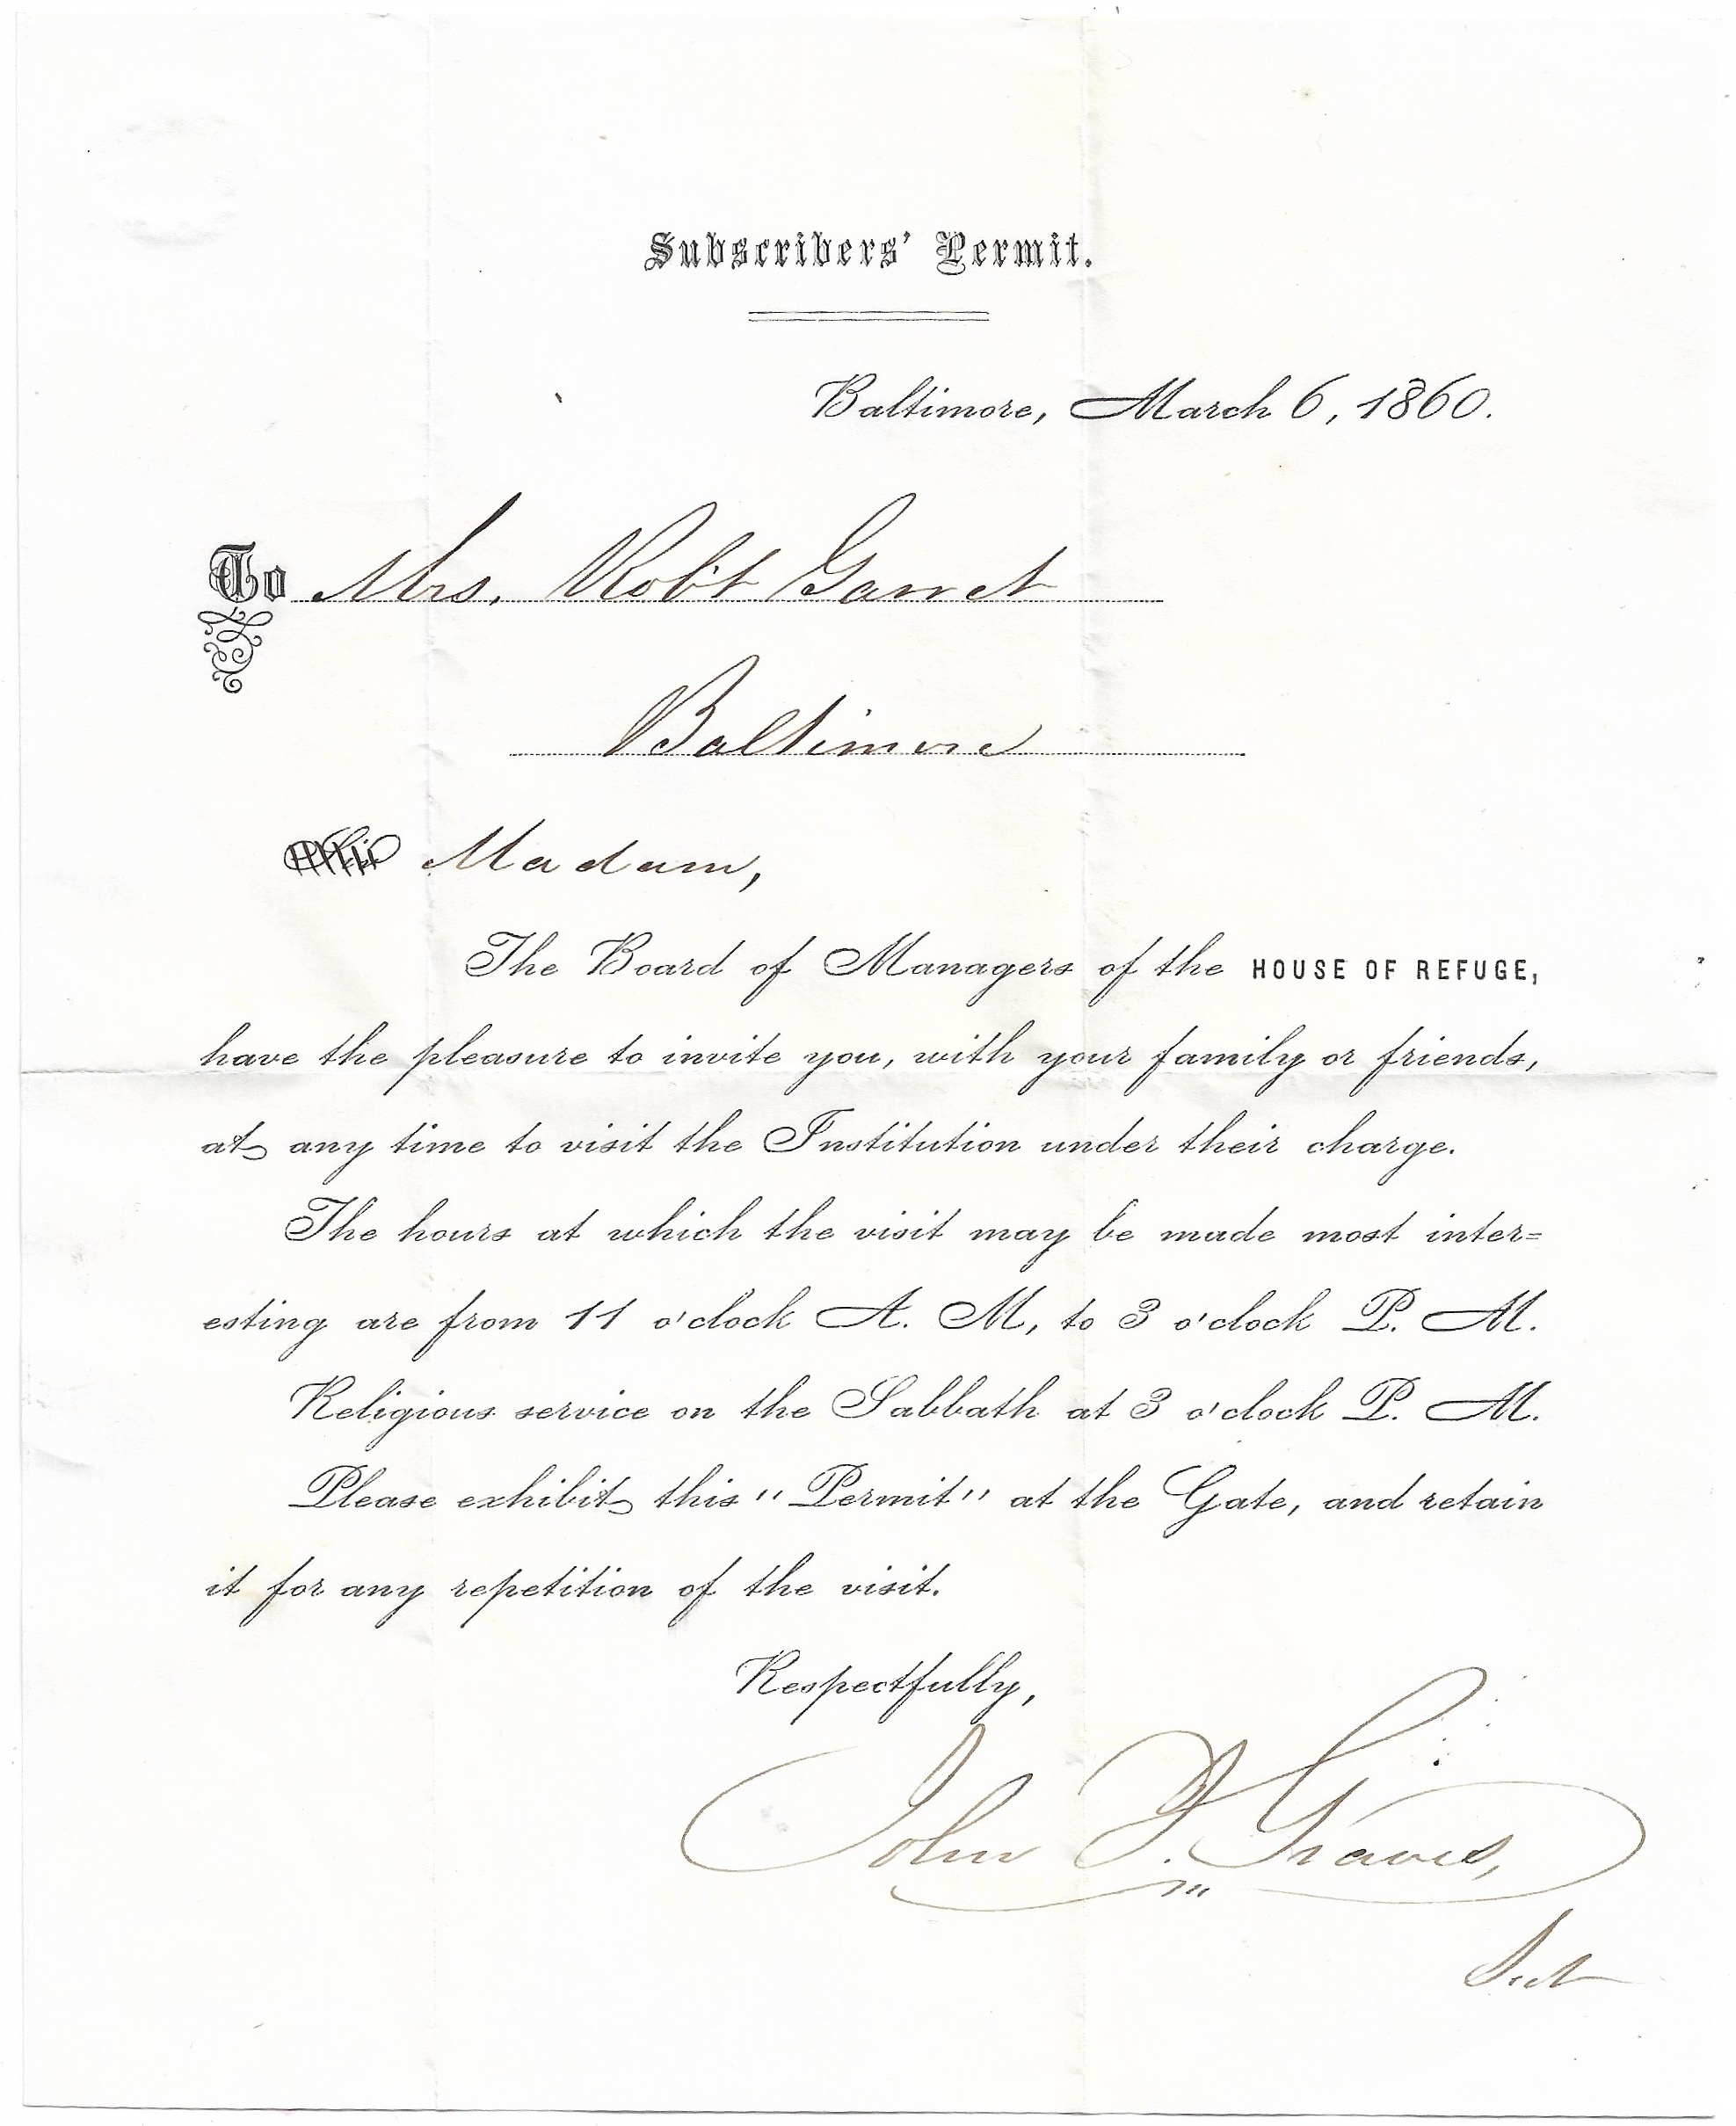 Subscribers' Permit.
Baltimore, March 6, 1860.
To Mrs. Rob't Garret
Baltimore
Madam,
The Board of Managers of the HOUSE OF REFUGE,
have the pleasure to invite you, with your family or friends,
at any time to visit the Institution under their charge.
The hours at which the visit may be made most inter=
esting are from 11 o'clock A. M, to 3 o'clock P. M.
Religious service on the Sabbath at 3 o'clock P. M.
Please exhibit this "Permit" at the Gate, and retain
it for any repetition of the visit.
Respectfully,
John Graves,